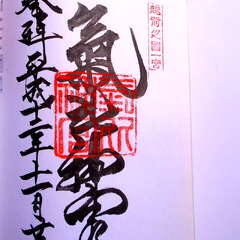 越前之國一宮
氣比神宮
奉拝 平成十二年十一月廿